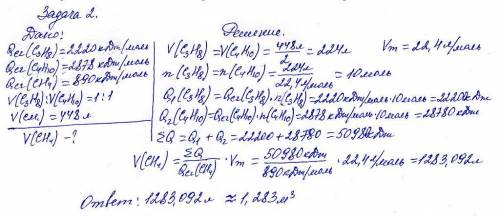 Задача 2.
Дано:
Qсг(C₃H₈)=2220кДж/моль
Qсг(C₄H₁₀)=2878 кДж/моль
Qсг(CH₄)=890кДж/моль
V(C₃H₈):V(C₄H₁₀)=1:1
V(см.)=448л
V(CH₄)-?
Решение.
V(C₃H₈)=V(C₄H₁₀)=448л/2=224л Vm=22,4л/моль
n(C₃H₈)=n(C₄H₁₀)=224л/22,4л/моль=10моль
Q₁(C₃H₈)=Qсг(C₃H₈)·n(C₃H₈)=2220кДж/моль·10моль=22200кДж
Q₂(C₄H₁₀)=Qсг(C₄H₁₀)·n(C₄H₁₀)=2878кДж/моль·10моль=28780кДж
ΣQ=Q₁+Q₂=22200+28780=50980кДж
V(CH₄)=ΣQ/Qсг(CH₄)·Vm=50980кДж/890кДж/моль·22,4л/моль=1283,092л
Ответ: 1283,092л ≈1,283м³